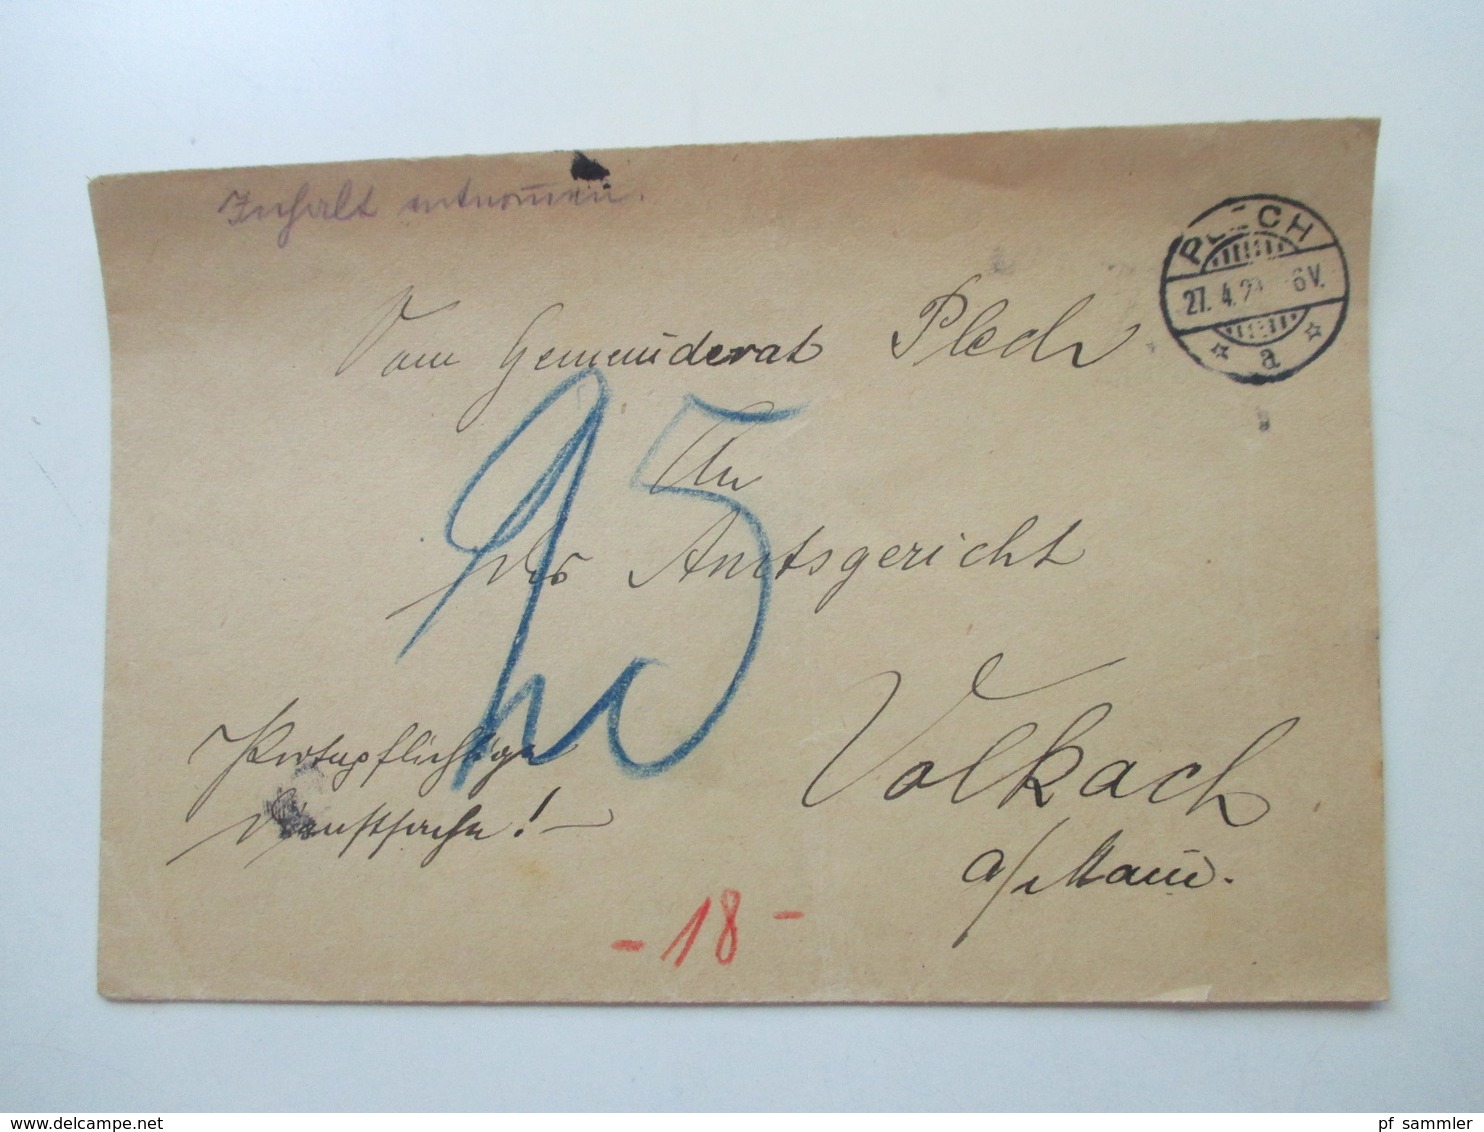 Inhalt entnommen.
PLECH
27. 4. 2 6V.
a
Vom Gemeinderat Plech
An
das Amtsgericht
Volkach
a/Main.
25
Portopflichtige
Dienstsache! —
- 18 -
www.delcampe.net
pf_sammler